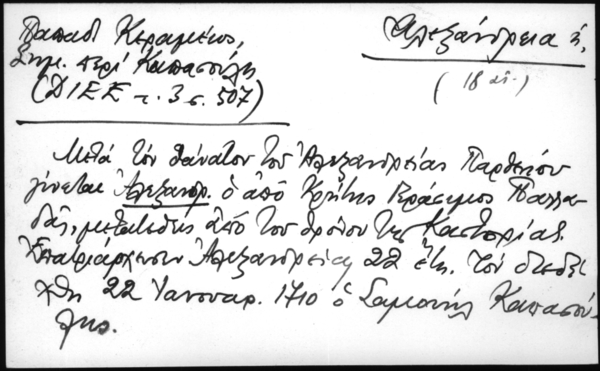 Παπαδ. Κεραμεύς,
Σημ. περί Καπασούλη
(ΔΙΕΕ τ. 3 σ. 507)
Αλεξάνδρεια ή,
(18 αι.)
Μετά τον θάνατον του Αλεξανδρείας Παρθενίου
γίνεται Αλεξανδρ. ο από Κρήτης Γεράσιμος Παλλα-
δάς, μετατεθείς από του θρόνου της Καστορίας.
Επατριάρχευσεν Αλεξανδρείας 22 έτη. Τον διεδέ
χθη 22 Ιανουαρ. 1710 ο Σαμουήλ Καπασού-
λης.